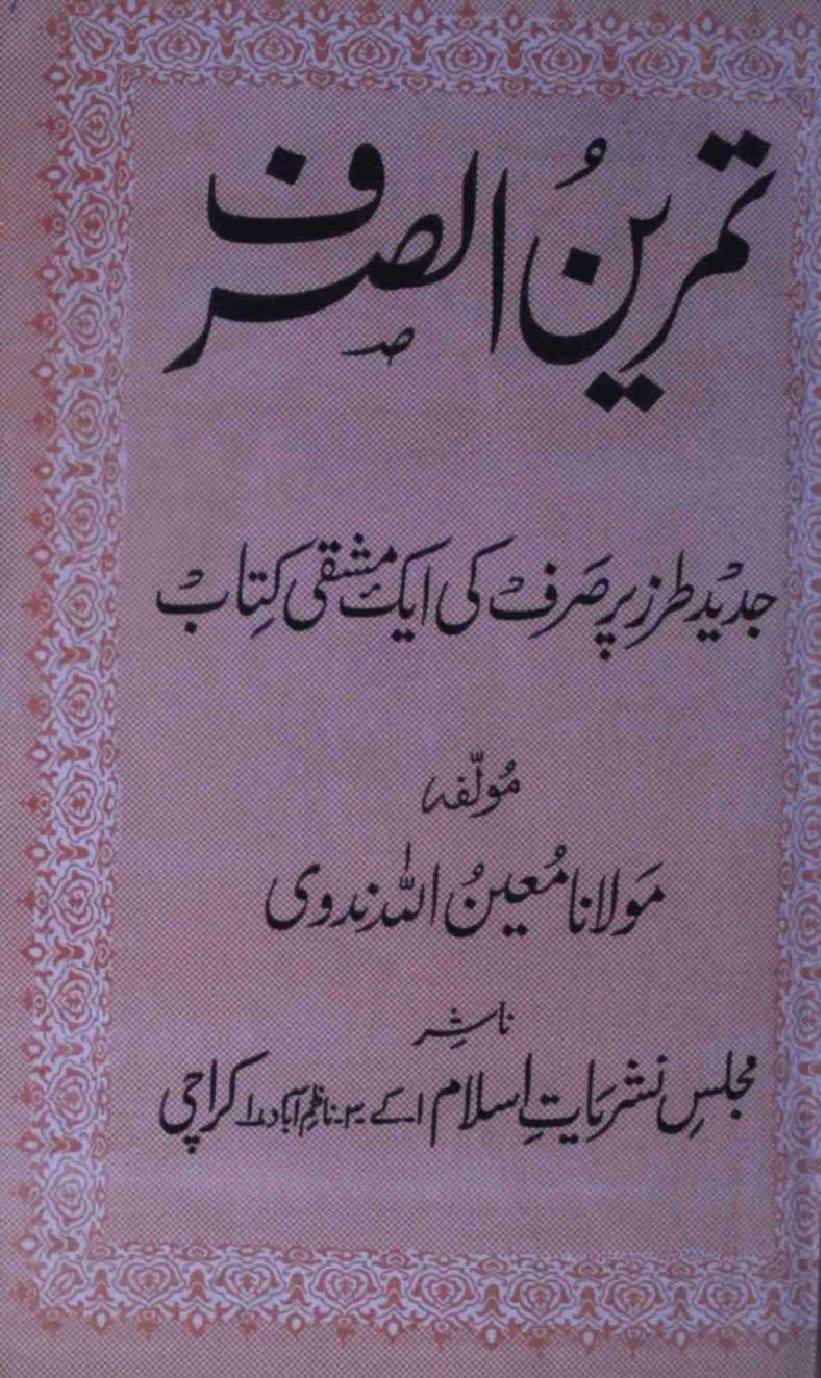 تمرینُ الصرف
جدید طرز پر صَرف کی ایک مشقی کِتاب
مُولّفہ
مَولانا مُعینُ اللہ ندوی
ناشِر
مجلسِ نشریاتِ اسلام ۱۔کے ۳۔ناظم آباد ۱ کراچی